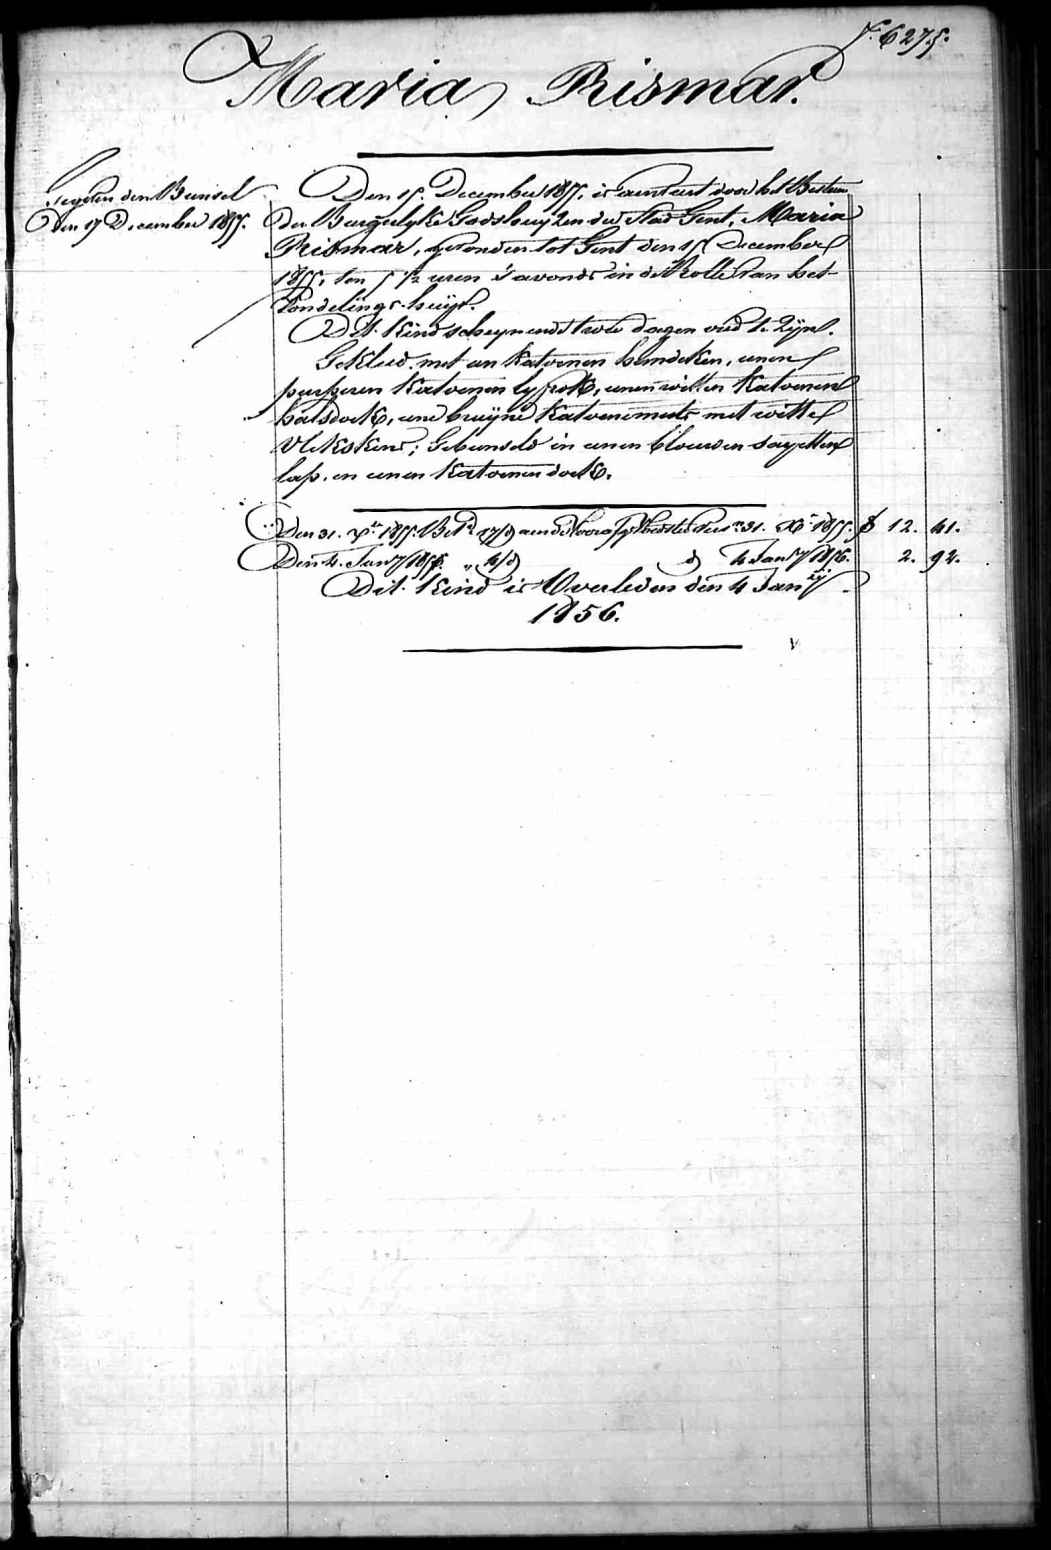 f. 6275.
Maria Rismar.
gegeven den Bunsel
Den 17 December 1855.
Den 15. December 1855, is aenveert door het Bestuer
der Burgelyke Godshuyzen der Stad Gent, Maria
Rismar, gevonden tot Gent den 15 December
1855, ten 5 1/2 uren 's avonds in de Rolle van het
Vondelings-huys.
Dit kind scheynende twee dagen oud te zyn.
Gekleed met een katoenen hemdeken, eenen
purperen katoenen lyfrok, eenen witten katoenen
halsdoek, eene bruyne katoene muts met witte
vlekskens; Gebunseld in eenen blauwen sayetten
lap, en eenen katoenen doek.
Den 31. Xr 1855. Bd 17/d aen de Voorz. 31. Xr 1855. f 12. 41.
Den 4. Jany 1856. " 4/d d 4 Jany 1856. 2. 92.
Dit kind is Overleden den 4 Jany
1856.